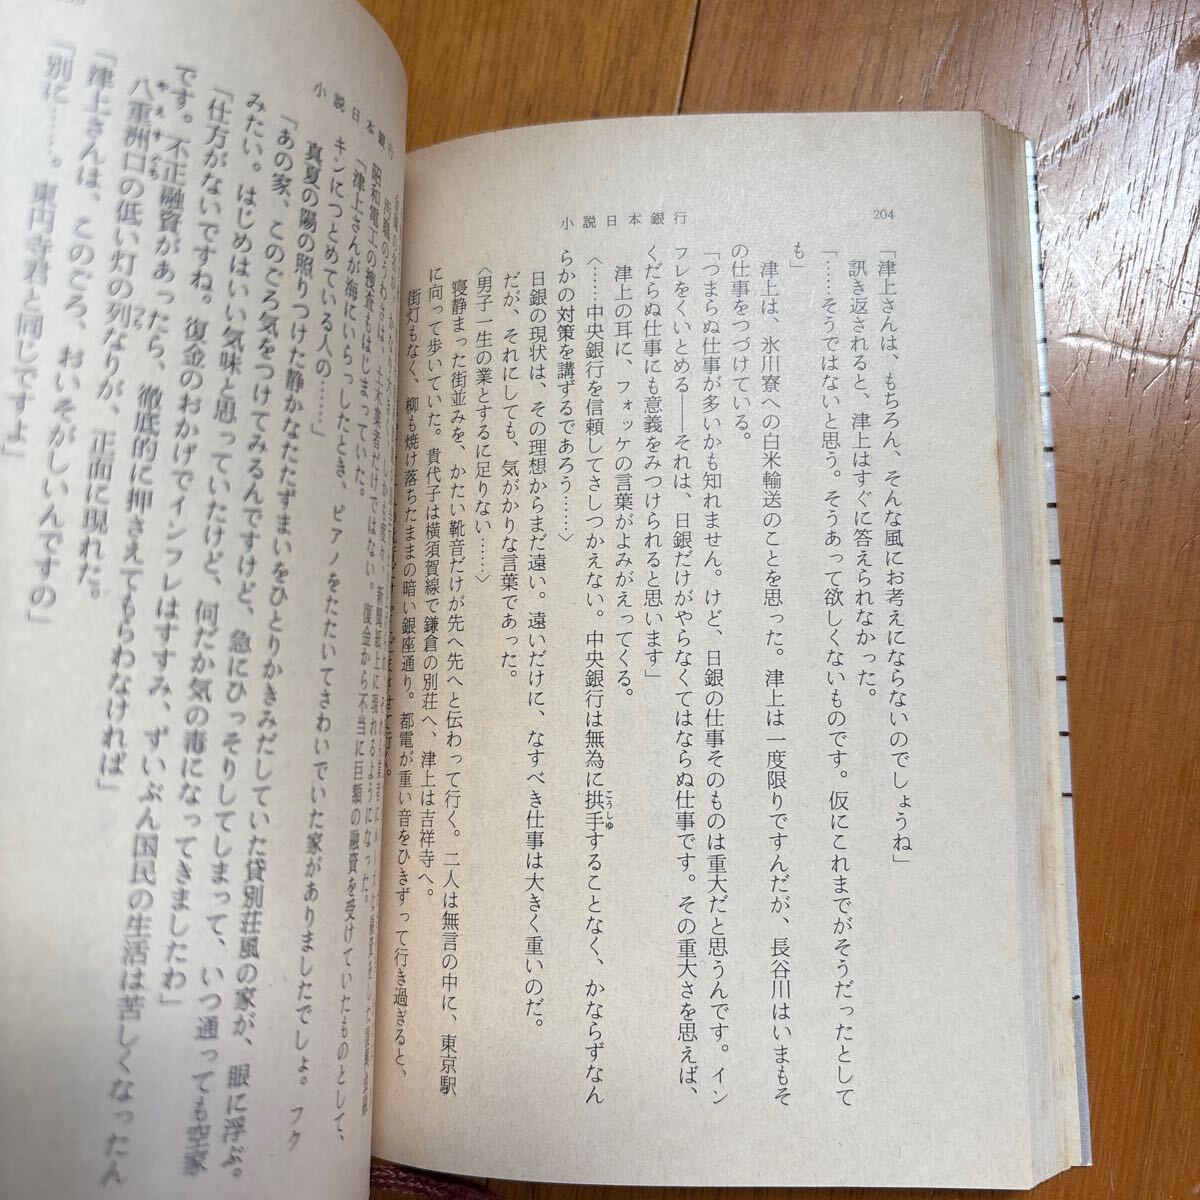 204
小説日本銀行
「津上さんは、もちろん、そんな風にお考えにならないのでしょうね」
訊き返されると、津上はすぐに答えられなかった。
「……そうではないと思う。そうあって欲しくないものです。仮にこれまでがそうだったとして
も」
津上は、氷川寮への白米輸送のことを思った。津上は一度限りですんだが、長谷川はいまもそ
の仕事をつづけている。
「つまらぬ仕事が多いかも知れません。けど、日銀の仕事そのものは重大だと思うんです。イン
フレをくいとめる――それは、日銀だけがやらなくてはならぬ仕事です。その重大さを思えば、
くだらぬ仕事にも意義をみつけられると思います」
津上の耳に、フォッケの言葉がよみがえってくる。
〈……中央銀行を信頼してさしつかえない。中央銀行は無為に拱手することなく、かならずなん
こうしゆ
らかの対策を講ずるであろう……〉
日銀の現状は、その理想からまだ遠い。遠いだけに、なすべき仕事は大きく重いのだ。
だが、それにしても、気がかりな言葉であった。
〈男子一生の業とするに足りない……〉
寝静まった街並みを、かたい靴音だけが先へ先へと伝わって行く。二人は無言の中に、東京駅
に向って歩いていた。貴代子は横須賀線で鎌倉の別荘へ、津上は吉祥寺へ。
街灯もなく、柳も焼け落ちたままの暗い銀座通り。都電が重い音をひきずって行き過ぎると、
小説日本銀行
汚職のうわさは、土木業者だけではない。復金から不当に巨額の融資を受けていたものとして、
昭和電工の捜査もはじまっていた。
「津上さんが海にいらっしたとき、ピアノをたたいてさわいでいた家がありましたでしょ。フク
キンにつとめている人の……」
真夏の陽の照りつけた静かなたたずまいをひとりかきみだしていた貸別荘風の家が、眼に浮ぶ。
「あの家、このごろ気をつけてみるんですけど、急にひっそりしてしまって、いつ通っても空家
みたい。はじめはいい気味と思っていたけど、何だか気の毒になってきましたわ」
「仕方がないですね。復金のおかげでインフレはすすみ、ずいぶん国民の生活は苦しくなったん
です。不正融資があったら、徹底的に押さえてもらわなければ」
八重洲口の低い灯の列なりが、正面に現れた。
やえすぐち
「津上さんは、このごろ、おいそがしいんですの」
「別に……。東円寺君と同じですよ」